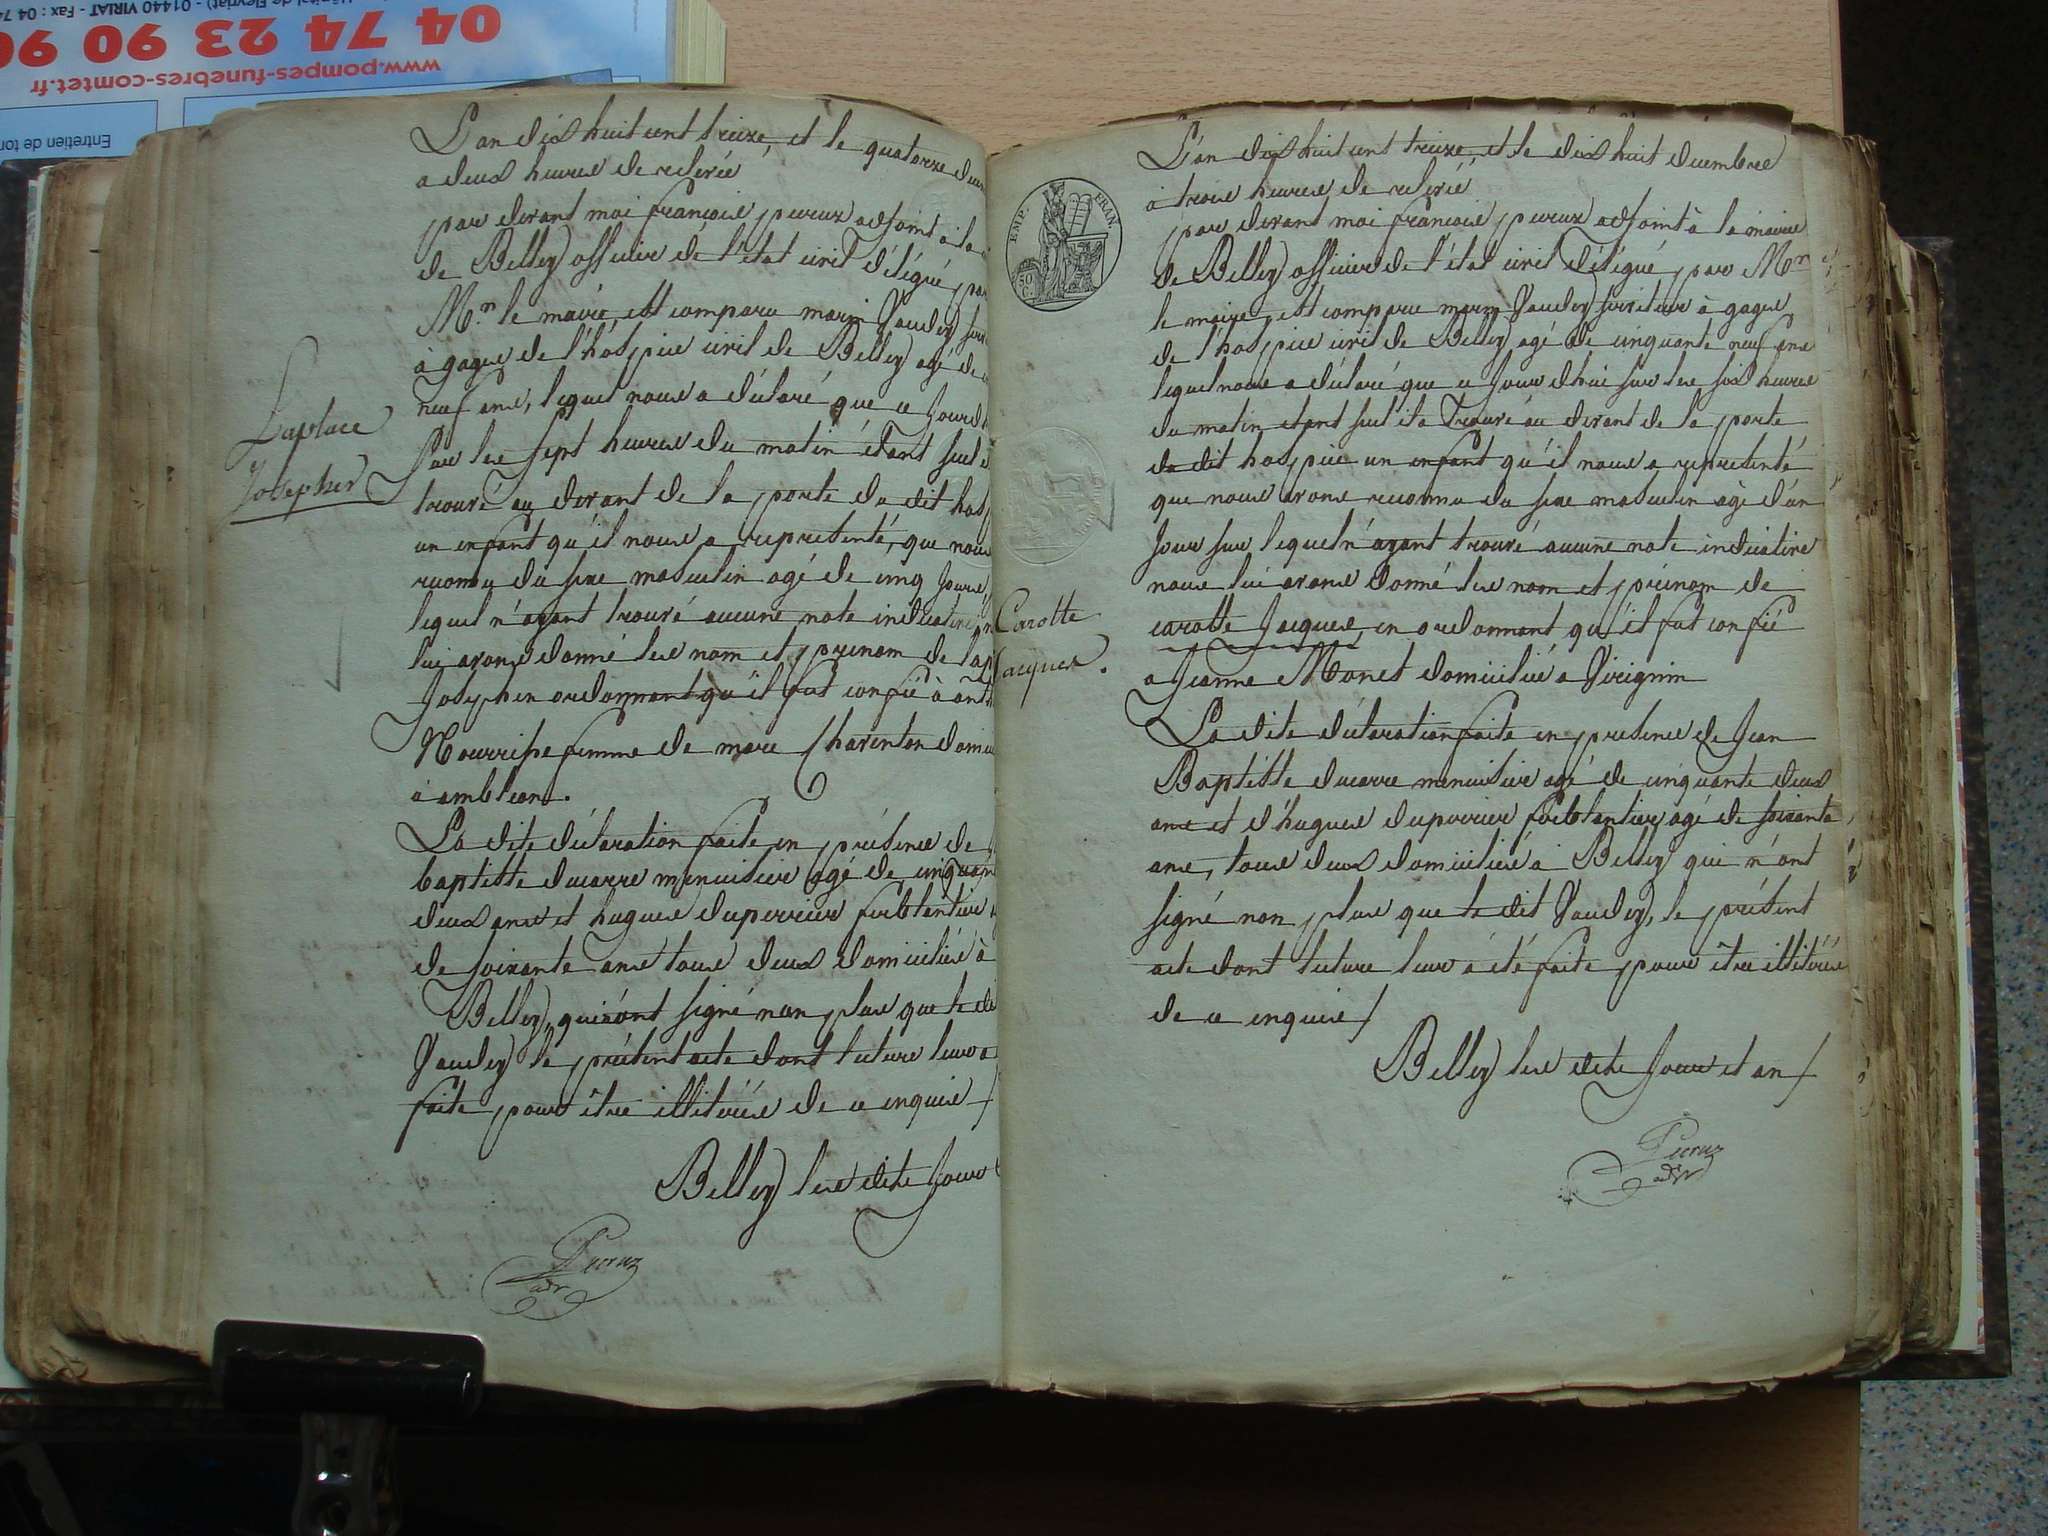 Hôpital de Fleyriat) - 01440 VIRIAT - Fax : 04 74
04 74 23 90 90
www.pompes-funebres-comtet.fr
Entretien de tom
L'an dix huit cent treize, et le quatorze decem
a deux heures de relevée
par devant moi françois peruz adjoint à la
de Belley officier de l'état civil délégué par
Mr. le maire, est comparu marin Vaudey
à gages de l'hospice civil de Belley agé de
neuf ans, lequel nous a déclaré que ce jourd
Sur les sept heures du matin étant seul
trouvé au devant de la porte du dit hos
un enfant qu'il nous a representé, que nous
reconnu du sexe masculin agé de cinq jours,
lequel n'ayant trouvé aucune note indicative
lui avons donné les nom et prenom de Lap
Josephe en ordonnant qu'il fut confié à
Nourrisse femme de marc Charenton domici
à ambleon.
La dite déclaration faite en présence de
baptiste ducarre menuisier agé de cinquante
deux ans et hugues duperrier ferblantier
de soixante ans tous deux domiciliés à
Belley, qui n'ont signé non plus que le di
Vaudey le présent acte dont lecture leur a
faite pour être illitérés de ce enquis /
Belley les dits jour
Peruz
adj
Laplace
Josephe
EMP. FRAN.
50 C.
L'an dix huit cent treize, et le dix huit decembre
à trois heures de relevée
par devant moi françois peruz adjoint à la mairie
de Belley officier de l'état civil délégué par Mr
le maire, est comparu marin Vaudey serviteur à gages
de l'hospice civil de Belley agé de cinquante neuf ans
lequel nous a déclaré que ce jourd'hui sur les six heures
du matin etant seul il a trouvé au devant de la porte
du dit hospice un enfant qu'il nous a representé
que nous avons reconnu du sexe masculin agé d'un
jour sur lequel n'ayant trouvé aucune note indicative
nous lui avons donné les nom et prénom de
carotte Jacques en ordonnant qu'il fut confié
a Jeanne Monet domiciliée a Virignin
La dite déclaration faite en presence de Jean
Baptiste ducarre menuisier agé de cinquante deux
ans et d'hugues duperrier ferblantier agé de soixante
ans, tous deux domiciliés à Belley qui n'ont
signé non plus que le dit Vaudey, le présent
acte dont lecture leur a été faite pour être illitérés
de ce enquis /
Belley les dits jour et an /
Peruz
adj
Carotte
Jacques.